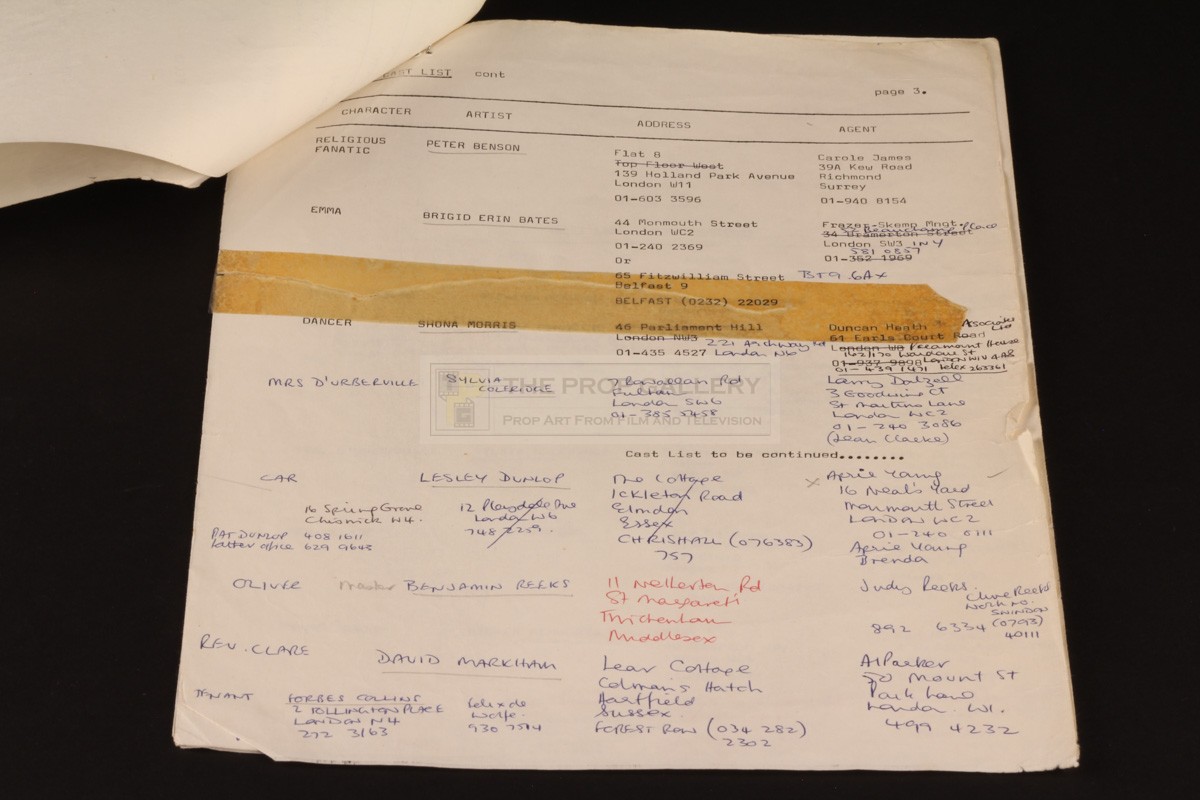 CAST LIST cont
page 3.
CHARACTER ARTIST ADDRESS AGENT
RELIGIOUS FANATIC
PETER BENSON
Flat 8
Top Floor West
139 Holland Park Avenue
London W11
01-603 3596
Carole James
39A Kew Road
Richmond
Surrey
01-940 8154
EMMA
BRIGID ERIN BATES
44 Monmouth Street
London WC2
01-240 2369
Or
65 Fitzwilliam Street BT9 6AX
Belfast 9
BELFAST (0232) 22029
Frazer-Skemp Mngt.
Place
34 Bramerton Street
London SW3 1NY
581 0357
01-352 1969
DANCER
SHONA MORRIS
46 Parliament Hill
London NW3 221 Archway Rd
01-435 4527 London N6
Duncan Heath Associates Ltd
61 Earls Court Road
London W8 Paramount House
162/170 Wardour St
01-937 9898 London W1V 4AB
01-439 1471 telex 263361
MRS D'URBERVILLE
SYLVIA
COLERIDGE
Rowallan Rd
Fulham
London SW6
01-385 5458
Larry Dalzell
3 Goodwins Ct
St Martins Lane
London WC2
01-240 3086
(Jean Clarke)
THE PROP GALLERY
PROP ART FROM FILM AND TELEVISION
Cast List to be continued........
CAR
LESLEY DUNLOP
16 Spring Grove
Chiswick W4.
PAT DUNLOP 408 1611
father office 629 9643
12
London W6
748 2259.
The Cottage
Ickleton Road
Elmdon
Essex
CHRISHALL (076383)
757
April Young
16 Neal's Yard
Monmouth Street
LONDON WC2
01-240 0111
April Young
Brenda
OLIVER
Master BENJAMIN REEKS
11 Rd
St Margarets
Twickenham
Middlesex
Judy Reeks.
Clive Reeks
Work no.
SWINDON
892 6334 (0793)
40111
REV. CLARE
DAVID MARKHAM
Lear Cottage
Colman's Hatch
Hartfield
Sussex.
FOREST ROW (034 282)
2302
Al Parker
50 Mount St
Park Lane
London. W1.
499 4232
TENANT
FORBES COLLINS
2 TOLLINGTON PLACE
LONDON N4
272 3163
Felix de
Wolfe.
930 7514